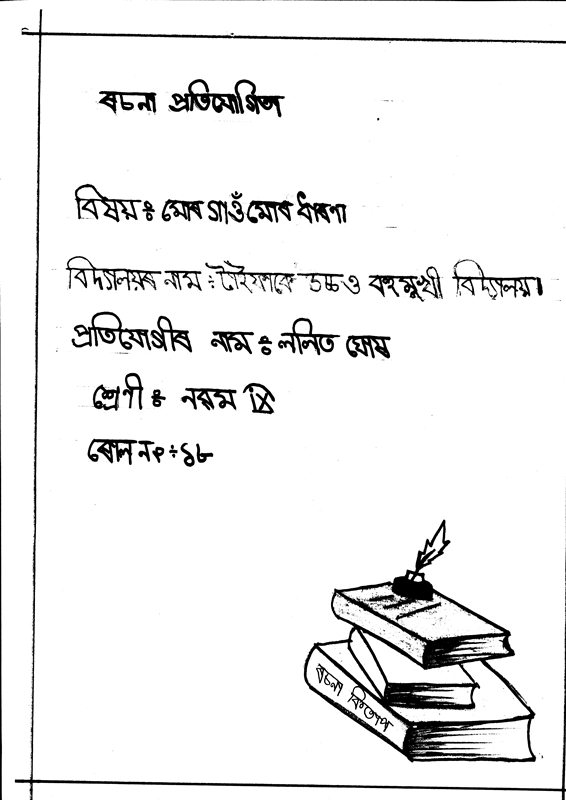 ৰচনা প্ৰতিযোগিতা
বিষয়ঃ মোৰ গাওঁ মোৰ ধাৰণা
বিদ্যালয়ৰ নাম : উচ্চ বহুমুখী বিদ্যালয়।
প্ৰতিযোগীৰ নাম ঃ ললিত ঘোষ
শ্ৰেণী ঃ নৱম IX
ৰোল নং ÷ ১৮
ৰচনা কিতাপ